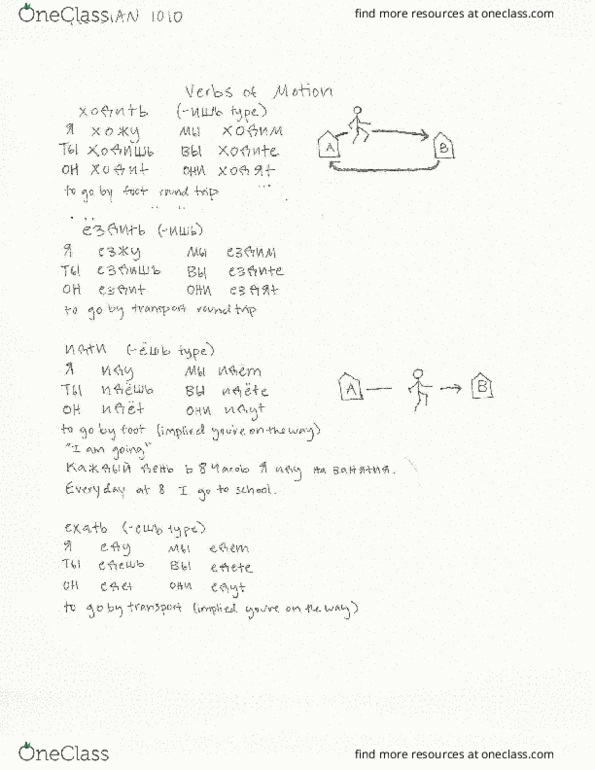 OneClass IAN 1010 find more resources at oneclass.com
Verbs of Motion
ходить (-ишь type)
Я хожу мы ходим
Ты ходишь вы ходите
он ходит они ходят
to go by foot round trip
A B
ездить (-ишь)
Я езжу мы ездим
Ты ездишь вы ездите
он ездит они ездят
to go by transport round trip
идти (-ёшь type)
Я иду мы идём
Ты идёшь вы идёте
он идёт они идут
A B
to go by foot (implied you're on the way)
"I am going"
Каждый день в 8 часов Я иду на занятия.
Everyday at 8 I go to school.
ехать (-ешь type)
Я еду мы едем
Ты едешь вы едете
он едет они едут
to go by transport (implied you're on the way)
OneClass find more resources at oneclass.com